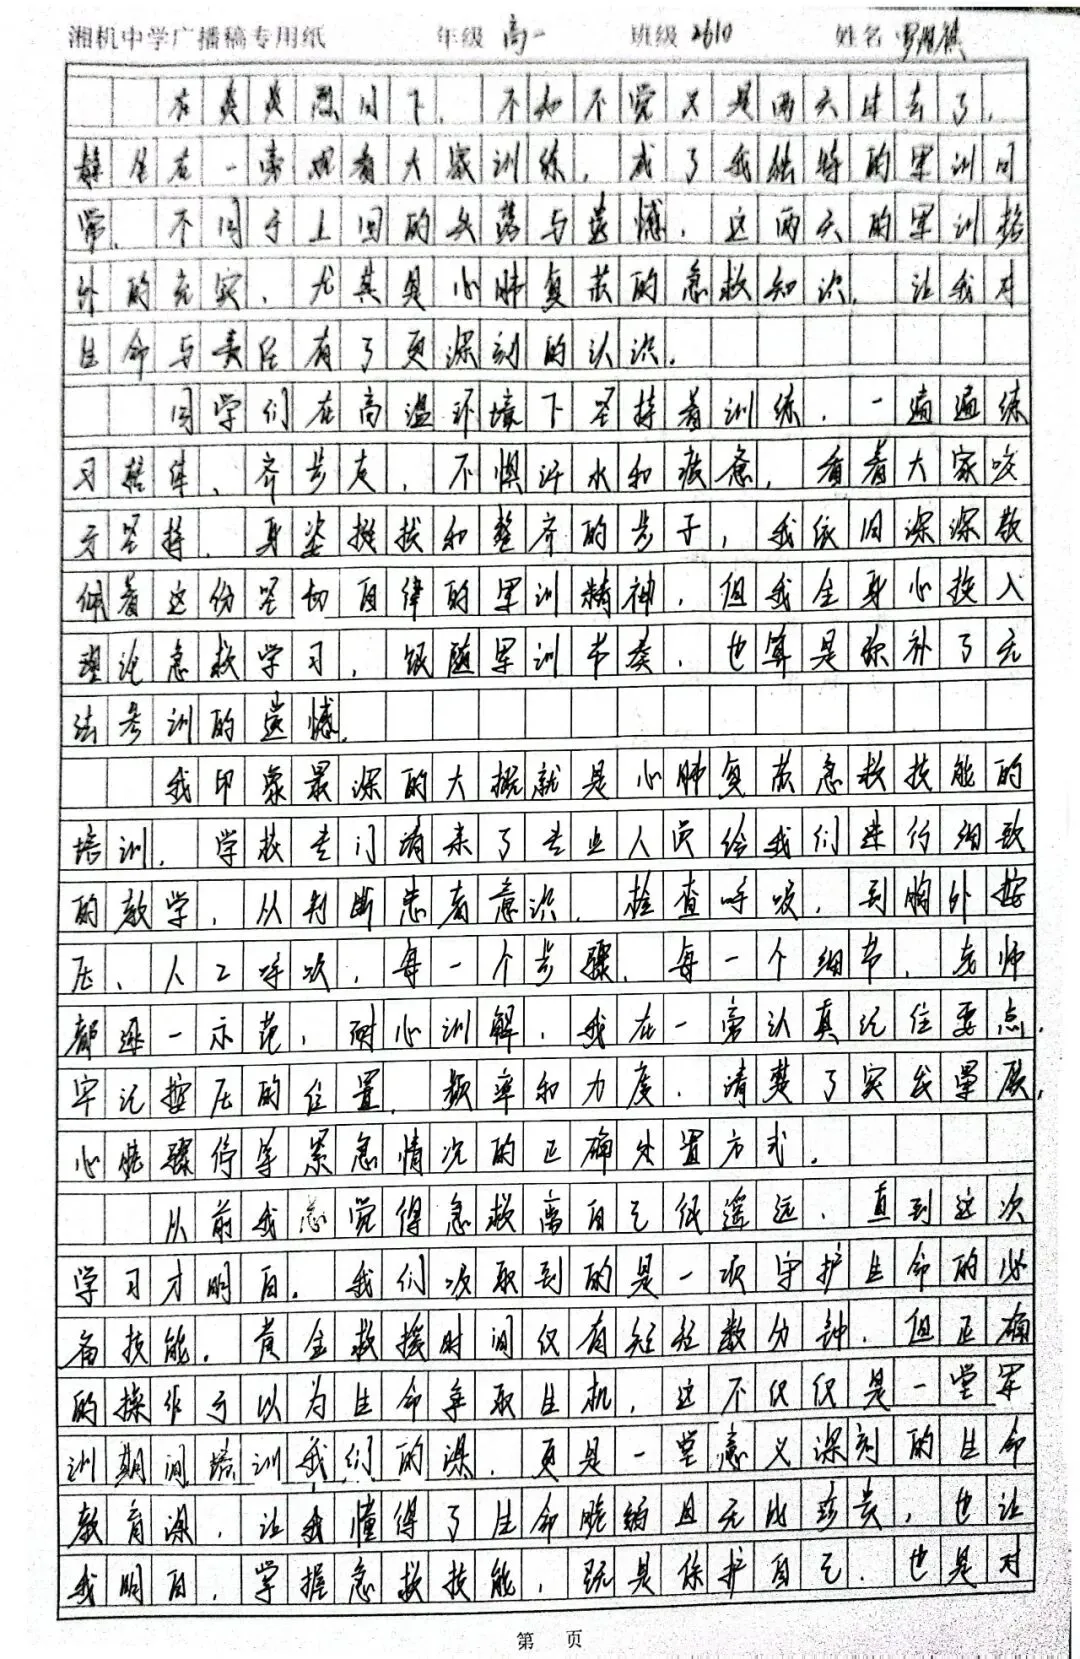 湘机中学广播稿专用纸 年级 高一 班级 2610 姓名
在炎炎烈日下，不知不觉又是两天过去了，
静坐在一旁观看大家训练，成了我独特的军训日
常，不同于上回的失落与遗憾，这两天的军训格
外的充实，尤其是心肺复苏的急救知识，让我对
生命与责任有了更深刻的认识。
同学们在高温环境下坚持着训练，一遍遍练
习整体、齐步走，不惧汗水和疲惫，看着大家咬
牙坚持，身姿挺拔和整齐的步子，我依旧深深敬
佩着这份坚韧自律的军训精神，但我全身心投入
理论急救学习，跟随军训节奏，也算是弥补了无
法参训的遗憾。
我印象最深的大概就是心肺复苏急救技能的
培训，学校专门请来了专业人员给我们进行细致
的教学，从判断患者意识、检查呼吸，到胸外按
压、人工呼吸，每一个步骤、每一个细节，老师
都逐一示范，耐心训解，我在一旁认真记住要点，
牢记按压的位置、频率和力度，清楚了突发晕厥，
心脏骤停等紧急情况的正确处置方式。
从前我总觉得急救离自己很遥远，直到这次
学习才明白，我们汲取到的是一项守护生命的必
备技能。黄金救援时间仅有短短数分钟，但正确
的操作可以为生命争取生机，这不仅仅是一堂军
训期间培训我们的课，更是一堂意义深刻的生命
教育课，让我懂得了生命脆弱且无比珍贵，也让
我明白，掌握急救技能，既是保护自己，也是对
第 页